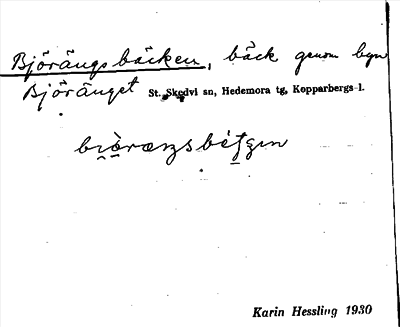 Björängsbäcken, bäck genom byn
Björänget St. Skedvi sn, Hedemora tg, Kopparbergs l.
Karin Hessling 1930